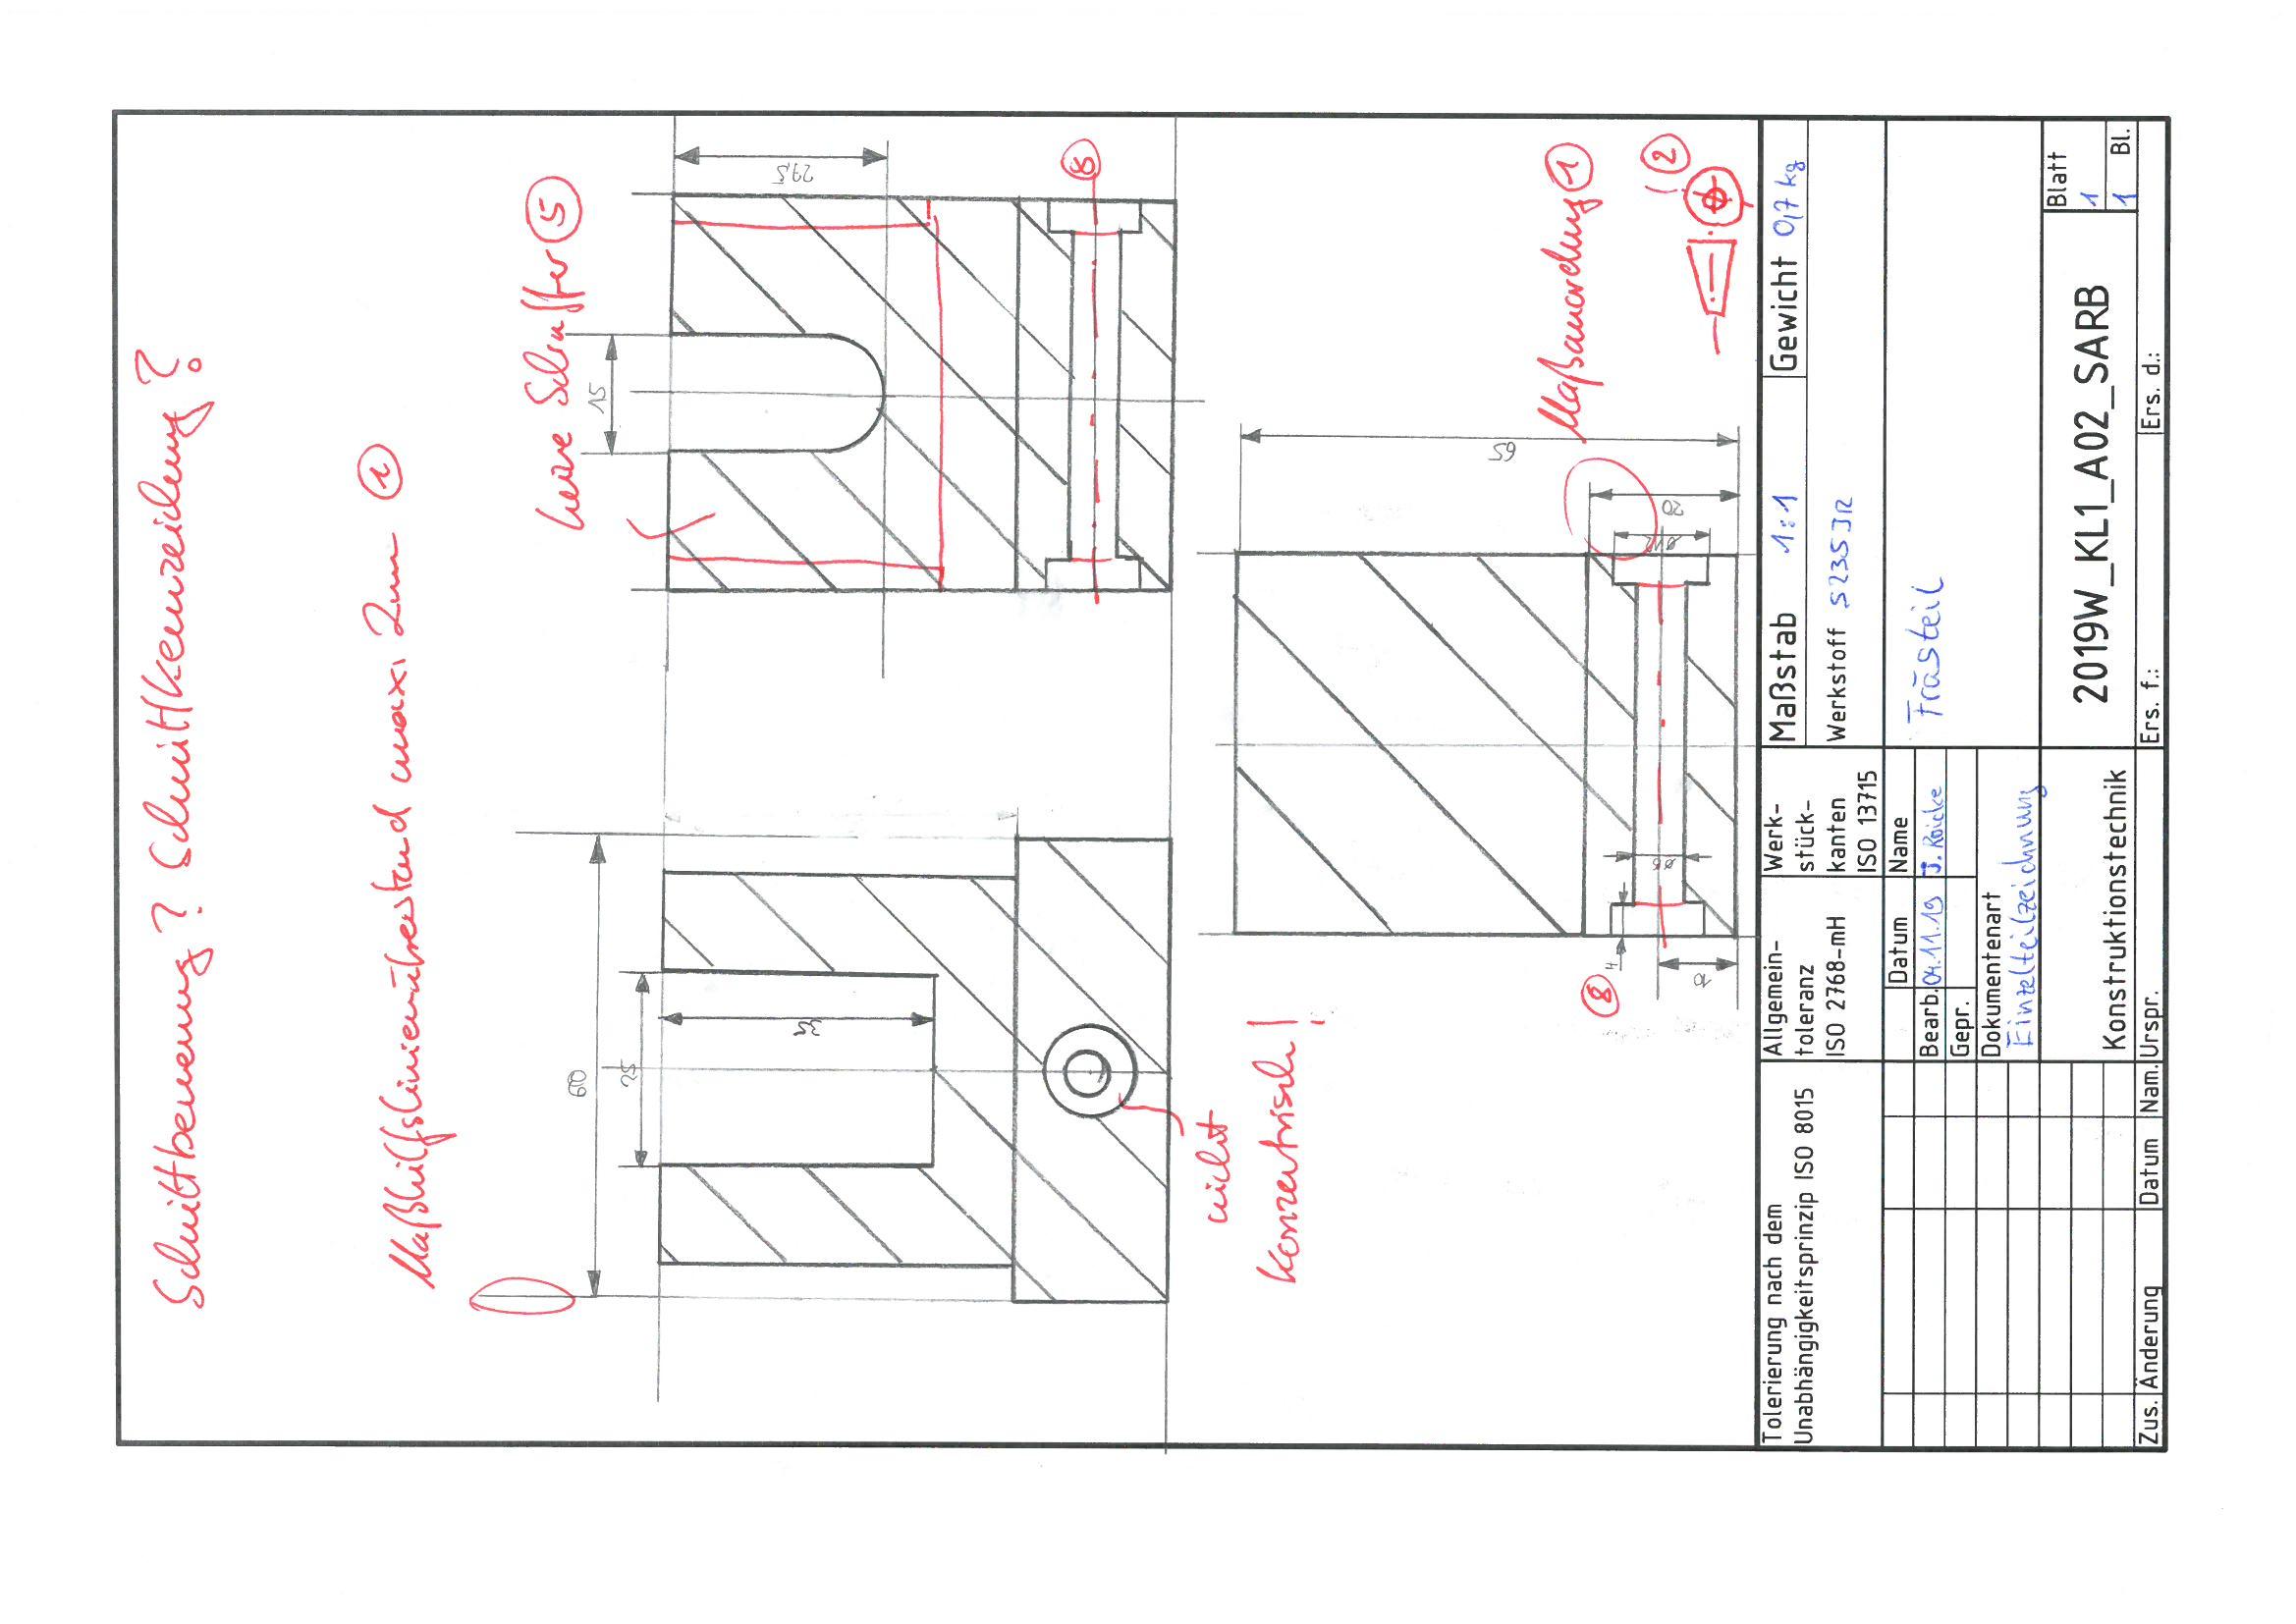 Schnittbenennung? Schnittkennzeichnung?
Maßhilfslinienüberstand max. 2mm 1
keine Schraffur 5
27,5
8
15
60
25
35
nicht
konzentrisch!
Maßanordnung 1
2
65
20
ø12
ø6
4
8
10
Tolerierung nach dem
Unabhängigkeitsprinzip ISO 8015
Allgemein-
toleranz
ISO 2768-mH
Werk-
stück-
kanten
ISO 13715
Maßstab 1:1
Gewicht 0,7 kg
Werkstoff S235JR
Datum Name
Bearb. 04.11.19 J. Reicke
Gepr.
Frästeil
Dokumentenart
Einzelteilzeichnung
Konstruktionstechnik
2019W_KL1_A02_SARB
Blatt
1
1 Bl.
Zus. Änderung Datum Nam. Urspr. Ers. f.: Ers. d.: